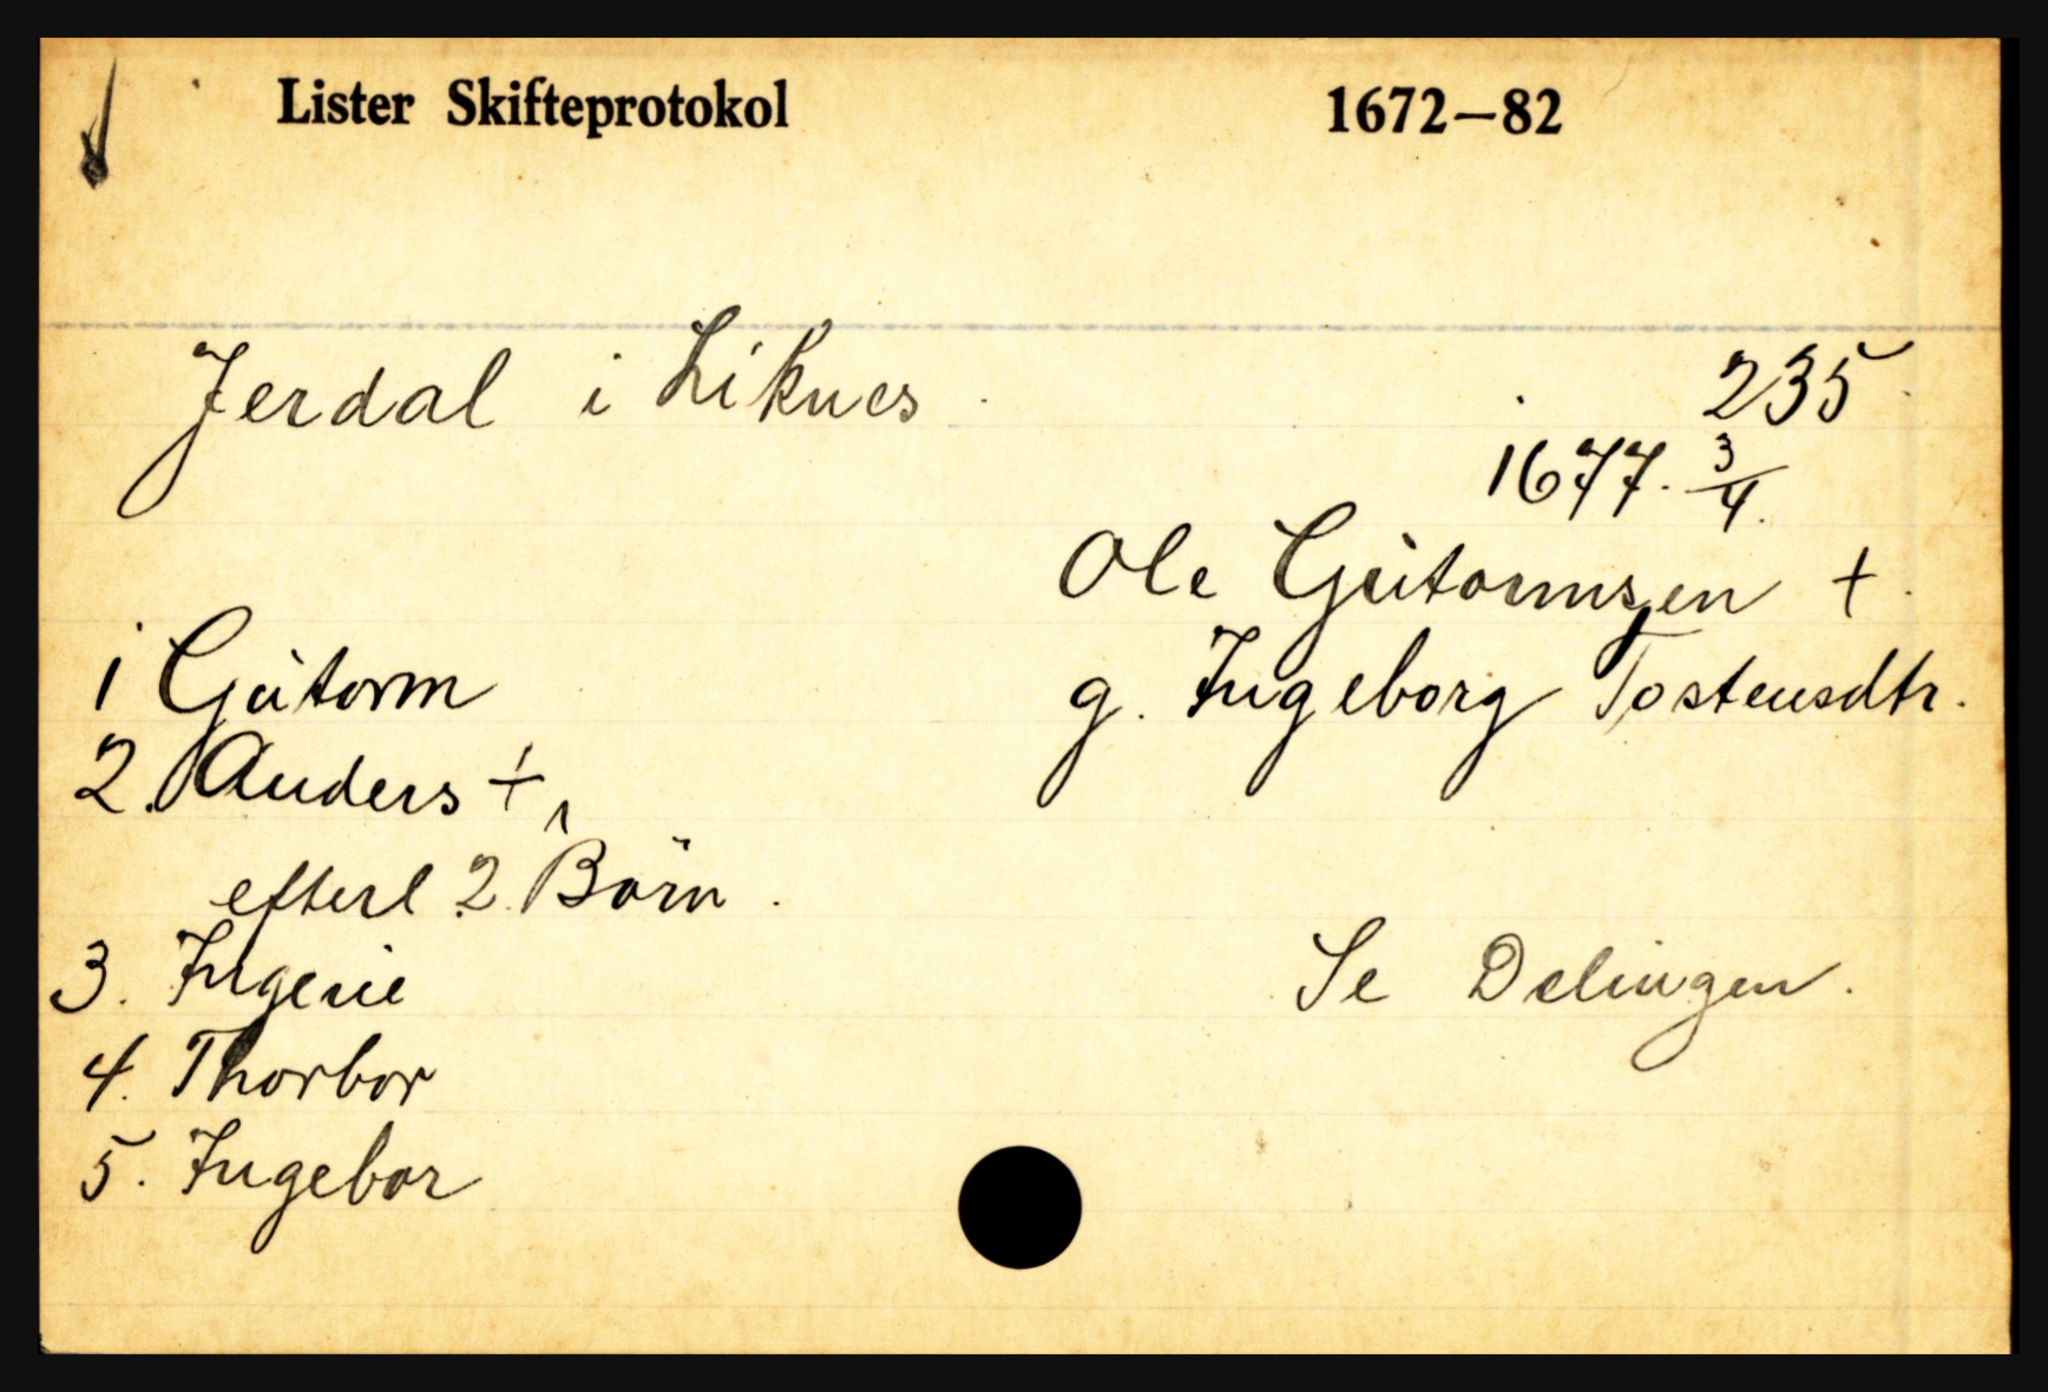 Lister Skifteprotokol 1672—82
Jerdal i Liknes . 235
1677. 3/4.
Ole Gùtormsen +.
g. Ingeborg Tostensdtr.
1 Gùtorm
2. Anders +,
efterl 2 Börn.
3. Ingerie
4. Thorbor
5. Ingebor
Se Delingen.